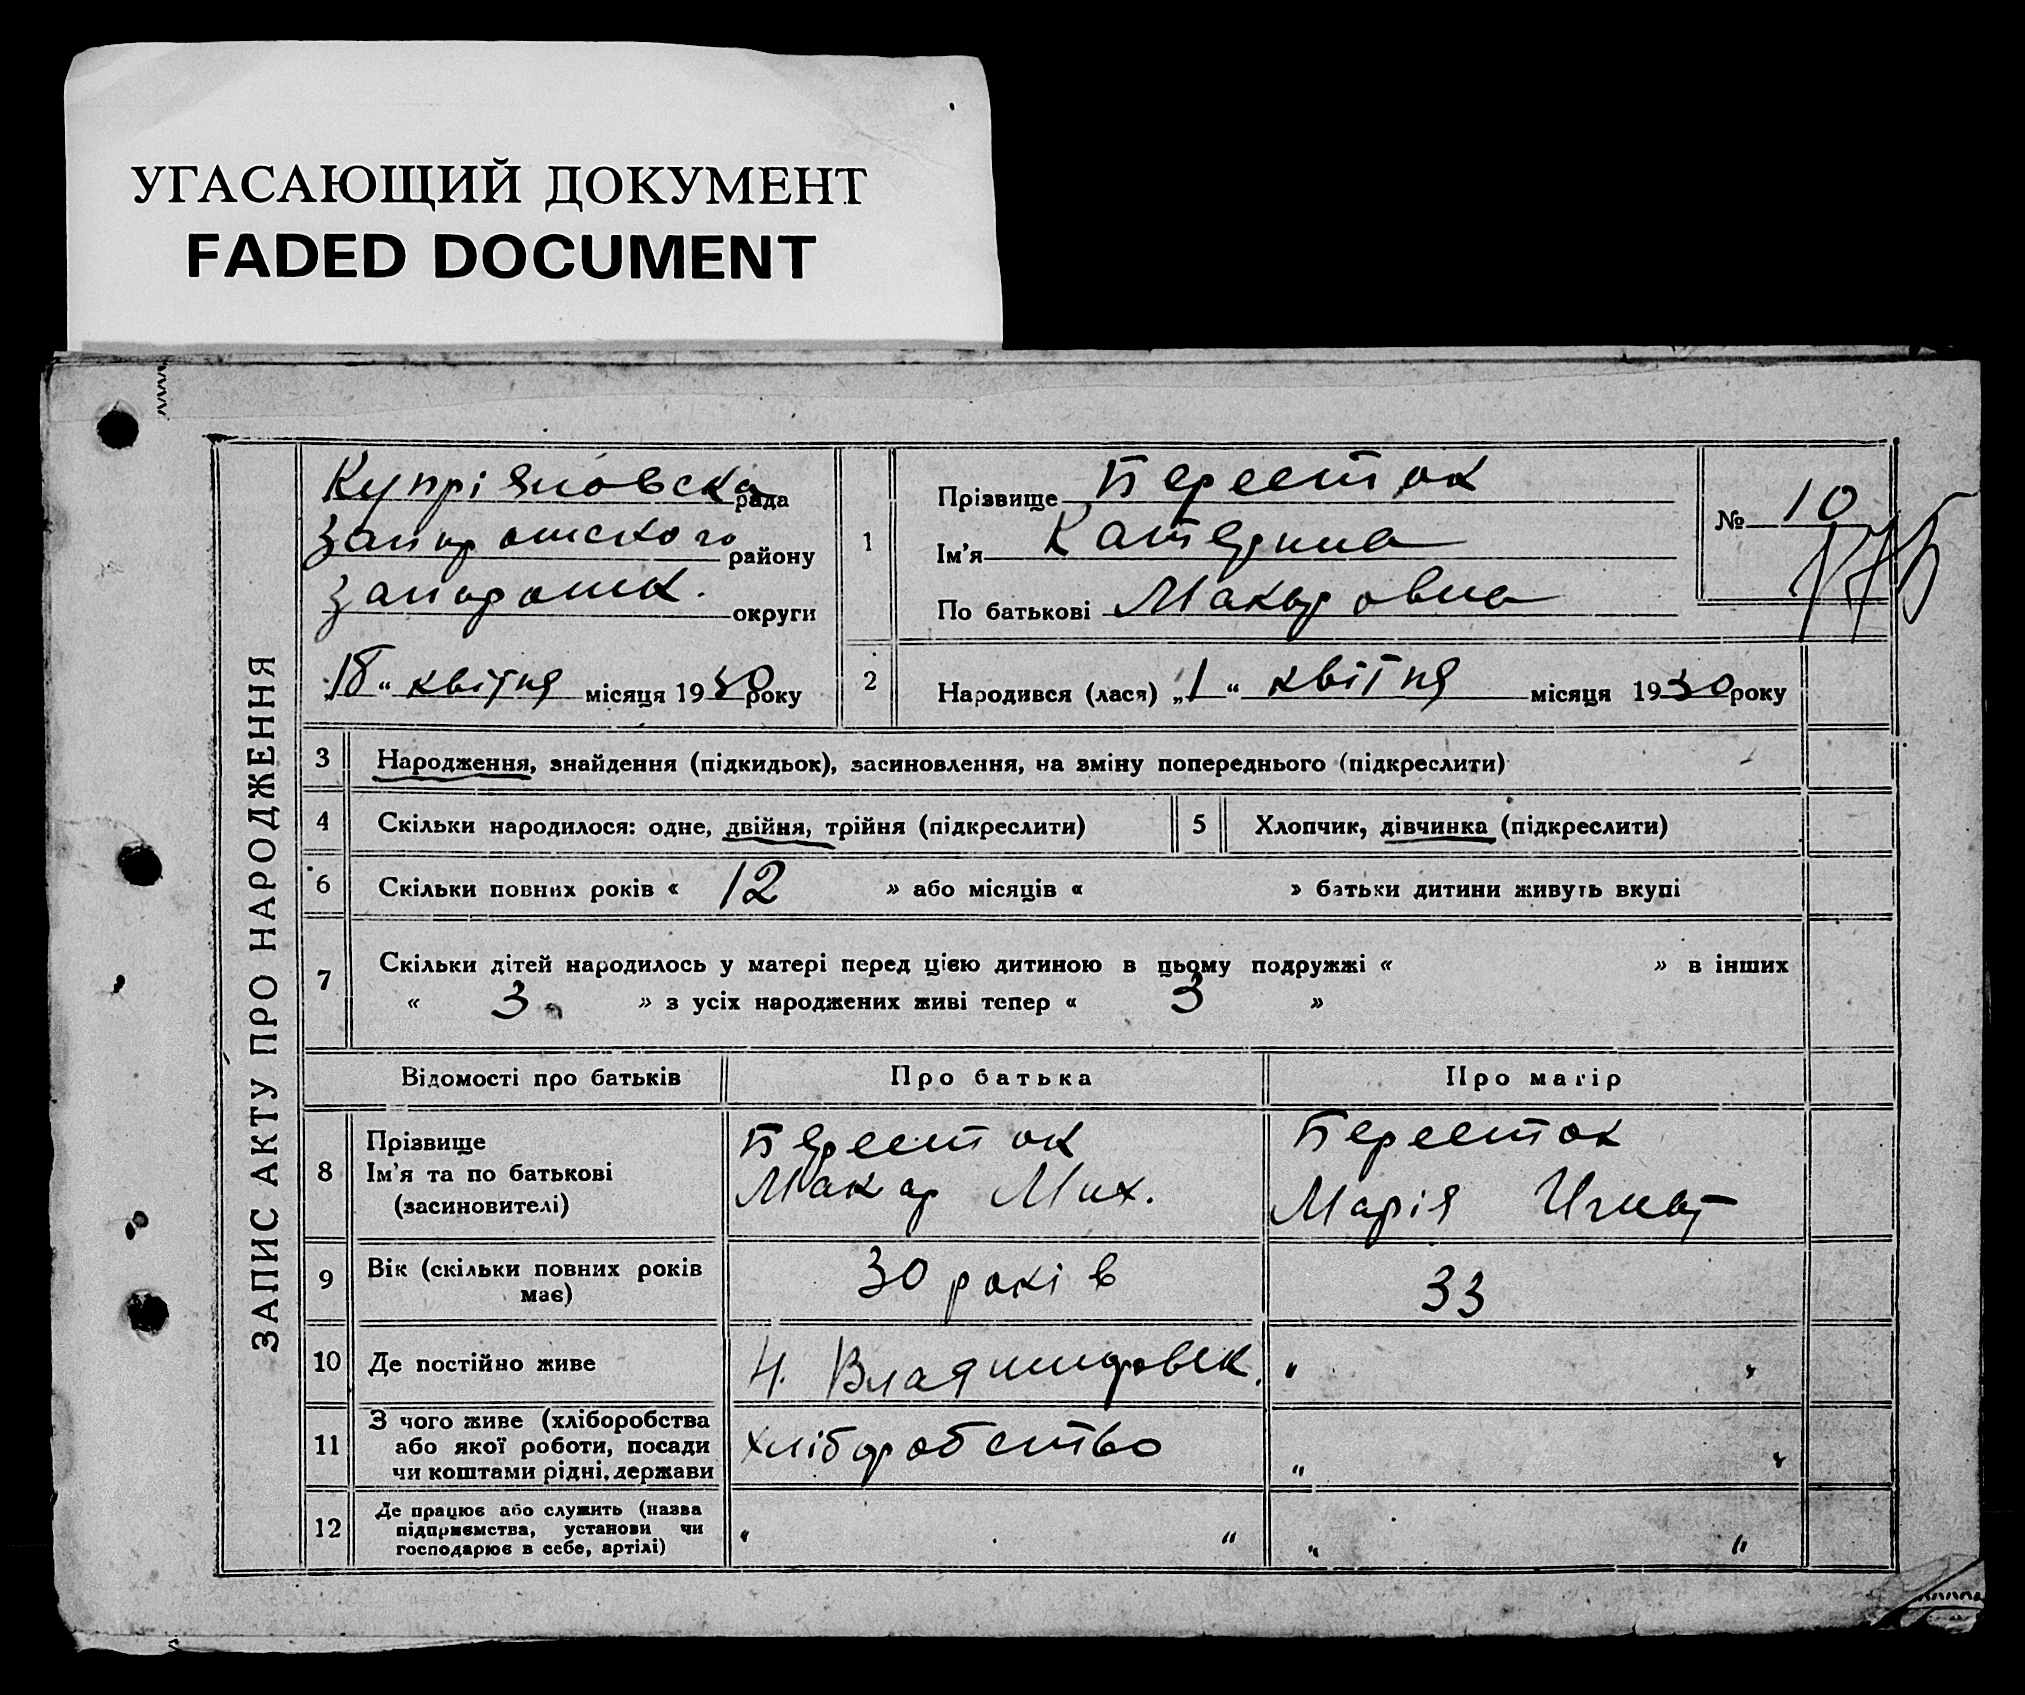 УГАСАЮЩИЙ ДОКУМЕНТ
FADED DOCUMENT
ЗАПИС АКТУ ПРО НАРОДЖЕННЯ
Купріяновска рада
Запорожского району
Запорожк. округи
18 " квітня місяця 1930 року
1
Прізвище Бересток
Ім'я Катерина
По батькові Макаровна
№ 10
2 Народився (лася) „1 " квітня місяця 1930 року
3 Народження, знайдення (підкидьок), засиновлення, на зміну попереднього (підкреслити)
4 Скільки народилося: одне, двійня, трійня (підкреслити) 5 Хлопчик, дівчинка (підкреслити)
6 Скільки повних років « 12 » або місяців « » батьки дитини живуть вкупі
7 Скільки дітей народилось у матері перед цією дитиною в цьому подружжі « » в інших
« 3 » з усіх народжених живі тепер « 3 »
Відомості про батьків Про батька Про матір
8 Прізвище
Ім'я та по батькові
(засиновителі)
Бересток
Макар Мих.
Бересток
Марія Игнат
9 Вік (скільки повних років має) 30 років 33
10 Де постійно живе Н. Владимировск. " "
11 З чого живе (хліборобства
або якої роботи, посади
чи коштами рідні, держави
хліборобство " "
12 Де працює або служить (назва
підприємства, установи чи
господарює в себе, артілі)
" " " "